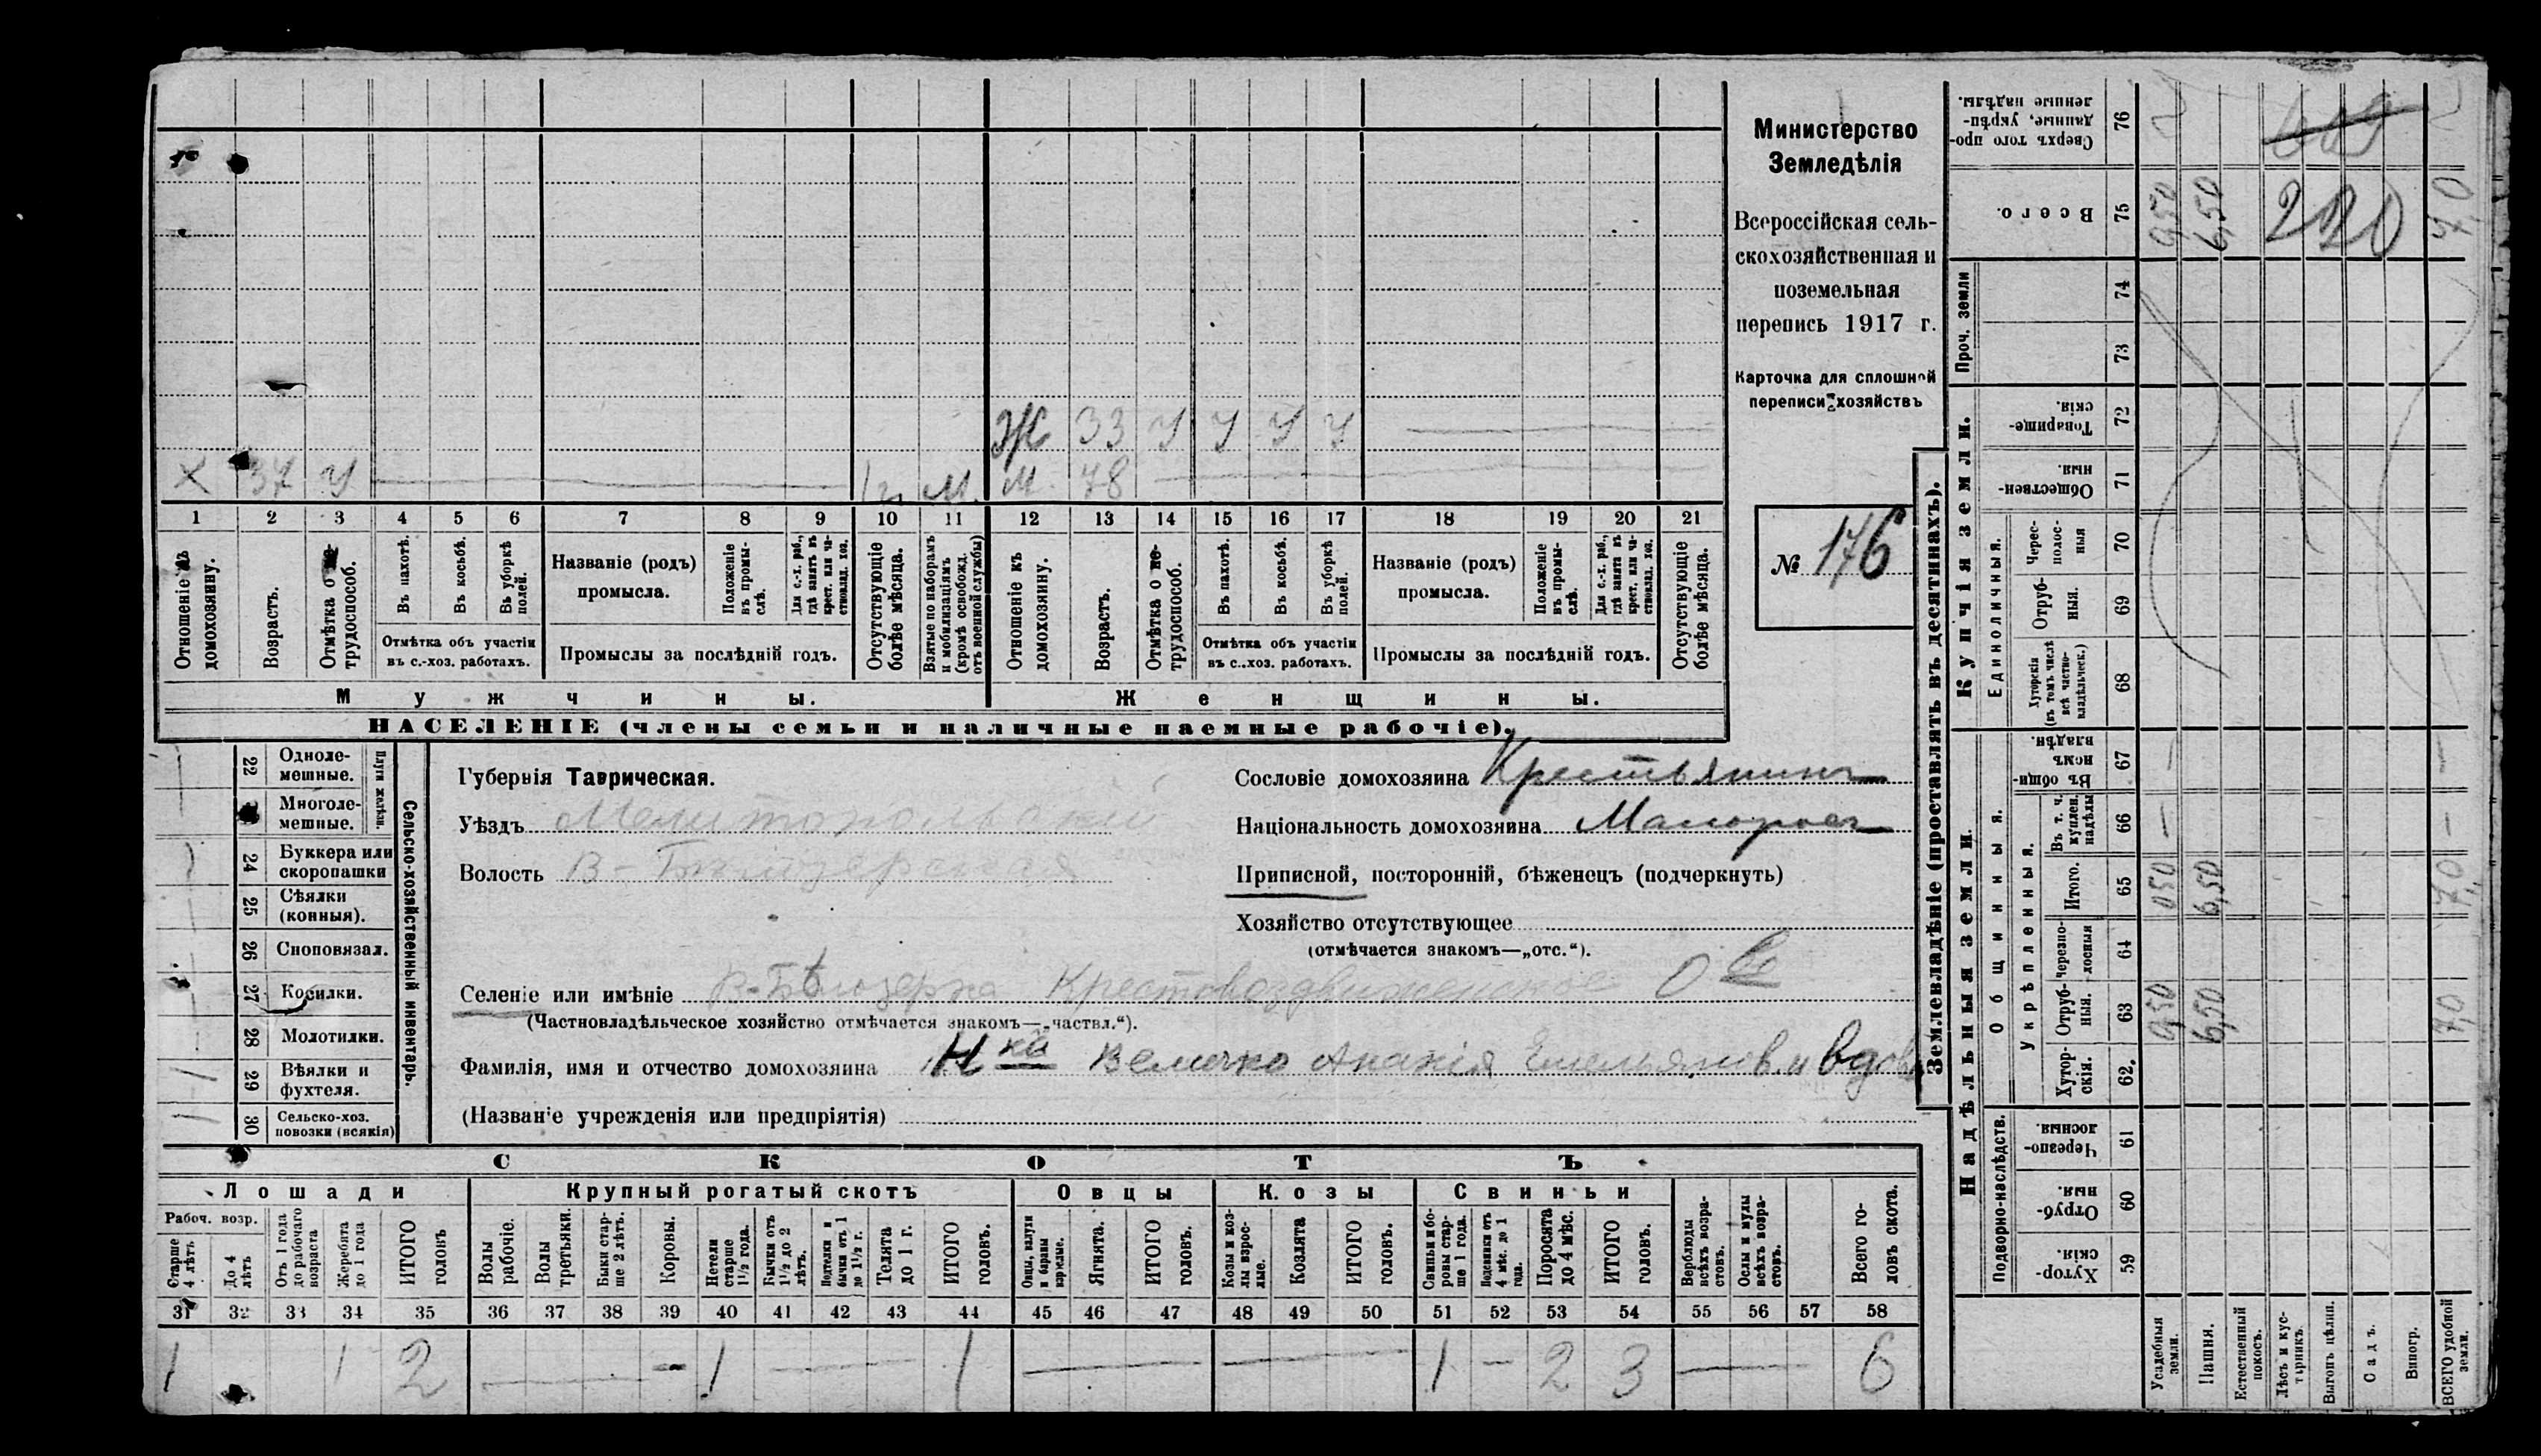 Ж 33 У У У У
Х 37 У 1 г. М. М 78
1 2 3 4 5 6 7 8 9 10 11 12 13 14 15 16 17 18 19 20 21
Отношеніе къ домохозяину.
Возрастъ.
Отмѣтка о трудоспособ.
Въ пахотѣ.
Въ косьбѣ.
Въ уборкѣ полей.
Отмѣтка объ участіи
въ с.-хоз. работахъ.
Названіе (родъ)
промысла.
Положеніе въ промыслѣ.
Для с.-х. раб., гдѣ занятъ въ крест. или частновлад. хоз.
Промыслы за послѣдній годъ.
Отсутствующіе болѣе мѣсяца.
Взятые по наборамъ и мобилизаціямъ (кромѣ освобожд. отъ военной службы)
Отношеніе къ домохозяину.
Возрастъ.
Отмѣтка о трудоспособ.
Въ пахотѣ.
Въ косьбѣ.
Въ уборкѣ полей.
Отмѣтка объ участіи
въ с..хоз. работахъ.
Названіе (родъ)
промысла.
Положеніе въ промыслѣ.
Для с.-х. раб., гдѣ занята въ крест. или частновлад. хоз.
Промыслы за послѣдній годъ.
Отсутствующіе болѣе мѣсяца.
Мужчины. Женщины.
НАСЕЛЕНІЕ (члены семьи и наличные наемные рабочіе).
Министерство
Земледѣлія
Всероссійская сель-
скохозяйственная и
поземельная
перепись 1917 г.
Карточка для сплошной
переписи хозяйствъ
№ 176
22 Одноле-
мешные.
Многоле-
мешные.
Плуги желѣзн.
24 Буккера или
скоропашки
25 Сѣялки
(конныя).
26 Сноповязал.
27 Косилки.
28 Молотилки.
29 Вѣялки и
фухтеля.
30 Сельско-хоз.
повозки (всякія)
Сельско-хозяйственный инвентарь.
Губернія Таврическая.
Уѣздъ Мелитопольскій
Волость В-Бѣлозерская
Сословіе домохозяина Крестьянинъ
Національность домохозяина Малоросъ
Приписной, посторонній, бѣженецъ (подчеркнуть)
Хозяйство отсутствующее
(отмѣчается знакомъ—„отс.“).
Селеніе или имѣніе В-Бѣлозерка Крестовоздвиженское О
(Частновладѣльческое хозяйство отмѣчается знакомъ—„частвл.“).
Фамилія, имя и отчество домохозяина Н-ка Величко Ананія Емельянов. и вдова
(Названіе учрежденія или предпріятія)
СКОТЪ
Лошади Крупный рогатый скотъ Овцы Козы Свиньи
Рабоч. возр.
Старше 4 лѣтъ
До 4 лѣтъ
Отъ 1 года до рабочаго возраста
Жеребята до 1 года
ИТОГО головъ
Волы рабочіе.
Волы третьяки.
Быки старше 2 лѣтъ.
Коровы.
Нетели старше 1½ года.
Бычки отъ 1½ до 2 лѣтъ.
Подтелки и бычки отъ 1 до 1½ г.
Телята до 1 г.
ИТОГО головъ.
Овцы, валухи и бараны взрослые.
Ягнята.
ИТОГО головъ.
Козы и козлы взрослые.
Козлята
ИТОГО головъ.
Свиньи и боровы старше 1 года.
Подсвинки отъ 4 мѣс. до 1 года.
Поросята до 4 мѣс.
ИТОГО головъ.
Верблюды всѣхъ возрастовъ.
Ослы и мулы всѣхъ возрастовъ.
Всего головъ скота.
31 32 33 34 35 36 37 38 39 40 41 42 43 44 45 46 47 48 49 50 51 52 53 54 55 56 57 58
1 1 2 — — 1 — 1 — — 1 — 2 3 — 6
Землевладѣніе (проставлять въ десятинахъ).
Надѣльныя земли. Купчія земли. Проч. земли
Подворно-наслѣдств.
Общинныя.
Укрѣпленныя.
Единоличныя.
Хуторскія
Отрубныя.
Черезполосныя.
Хуторскія.
Отрубныя.
Черезполосныя
Итого.
Въ т. ч. куплен. надѣлы
Въ общинномъ владѣн.
Хуторскія (въ томъ числѣ всѣ частновладѣльческ.)
Отрубныя.
Чересполосныя
Общественныя.
Товарищескія.
Всего.
Сверхъ того проданные, укрѣпленные надѣлы.
59 60 61 62. 63 64 65 66 67 68 69 70 71 72 73 74 75 76
Усадебныя земли. 0,50 0,50 — — 0,50
Пашня. 6,50 6,50 6,50
Естественный покосъ.
Лѣсъ и кустарникъ.
Выгонъ цѣлин.
Садъ.
Виногр.
ВСЕГО удобной земли. 7,0 7,0 — — 7,0